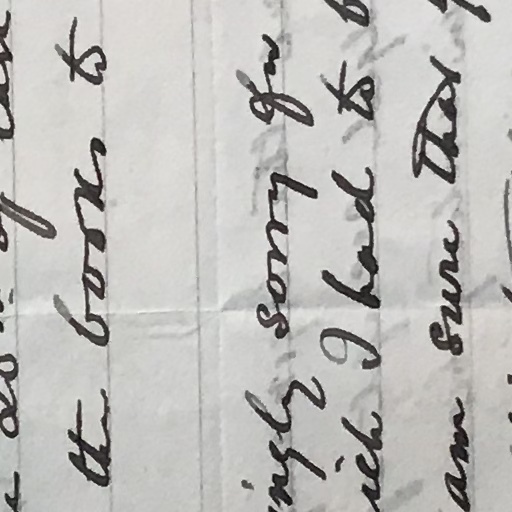 of
the books to
ingly sorry for
ich I had to b
am sure that